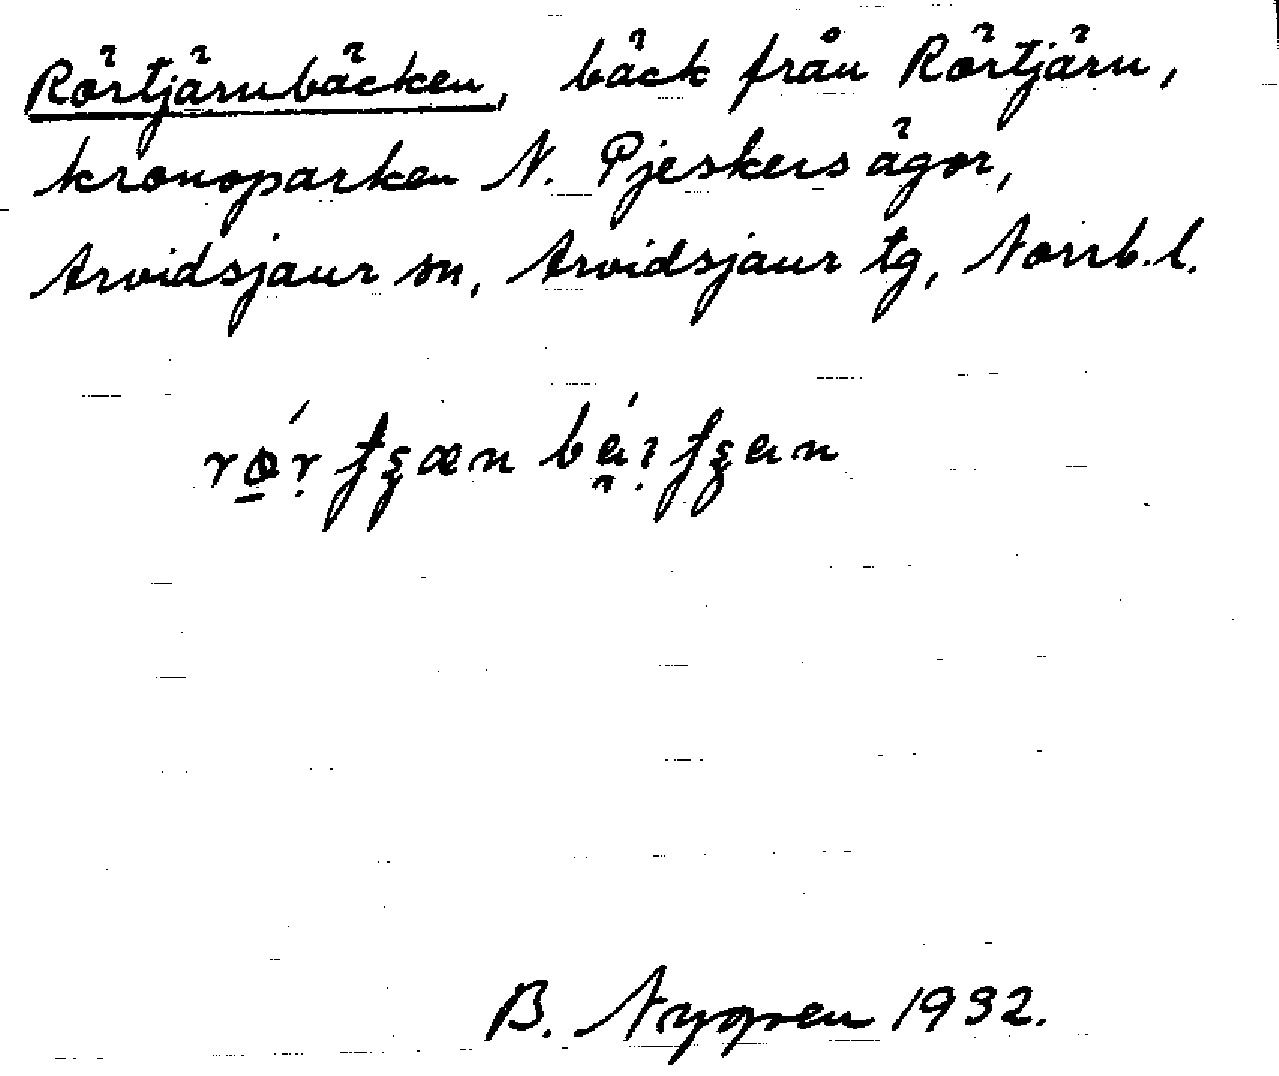 Rörtjärnbäcken, bäck från Rörtjärn,
kronoparken N. Pjeskers ägor,
Arvidsjaur sn, Arvidsjaur tg, Norrb.l.
B. Nygren 1932.